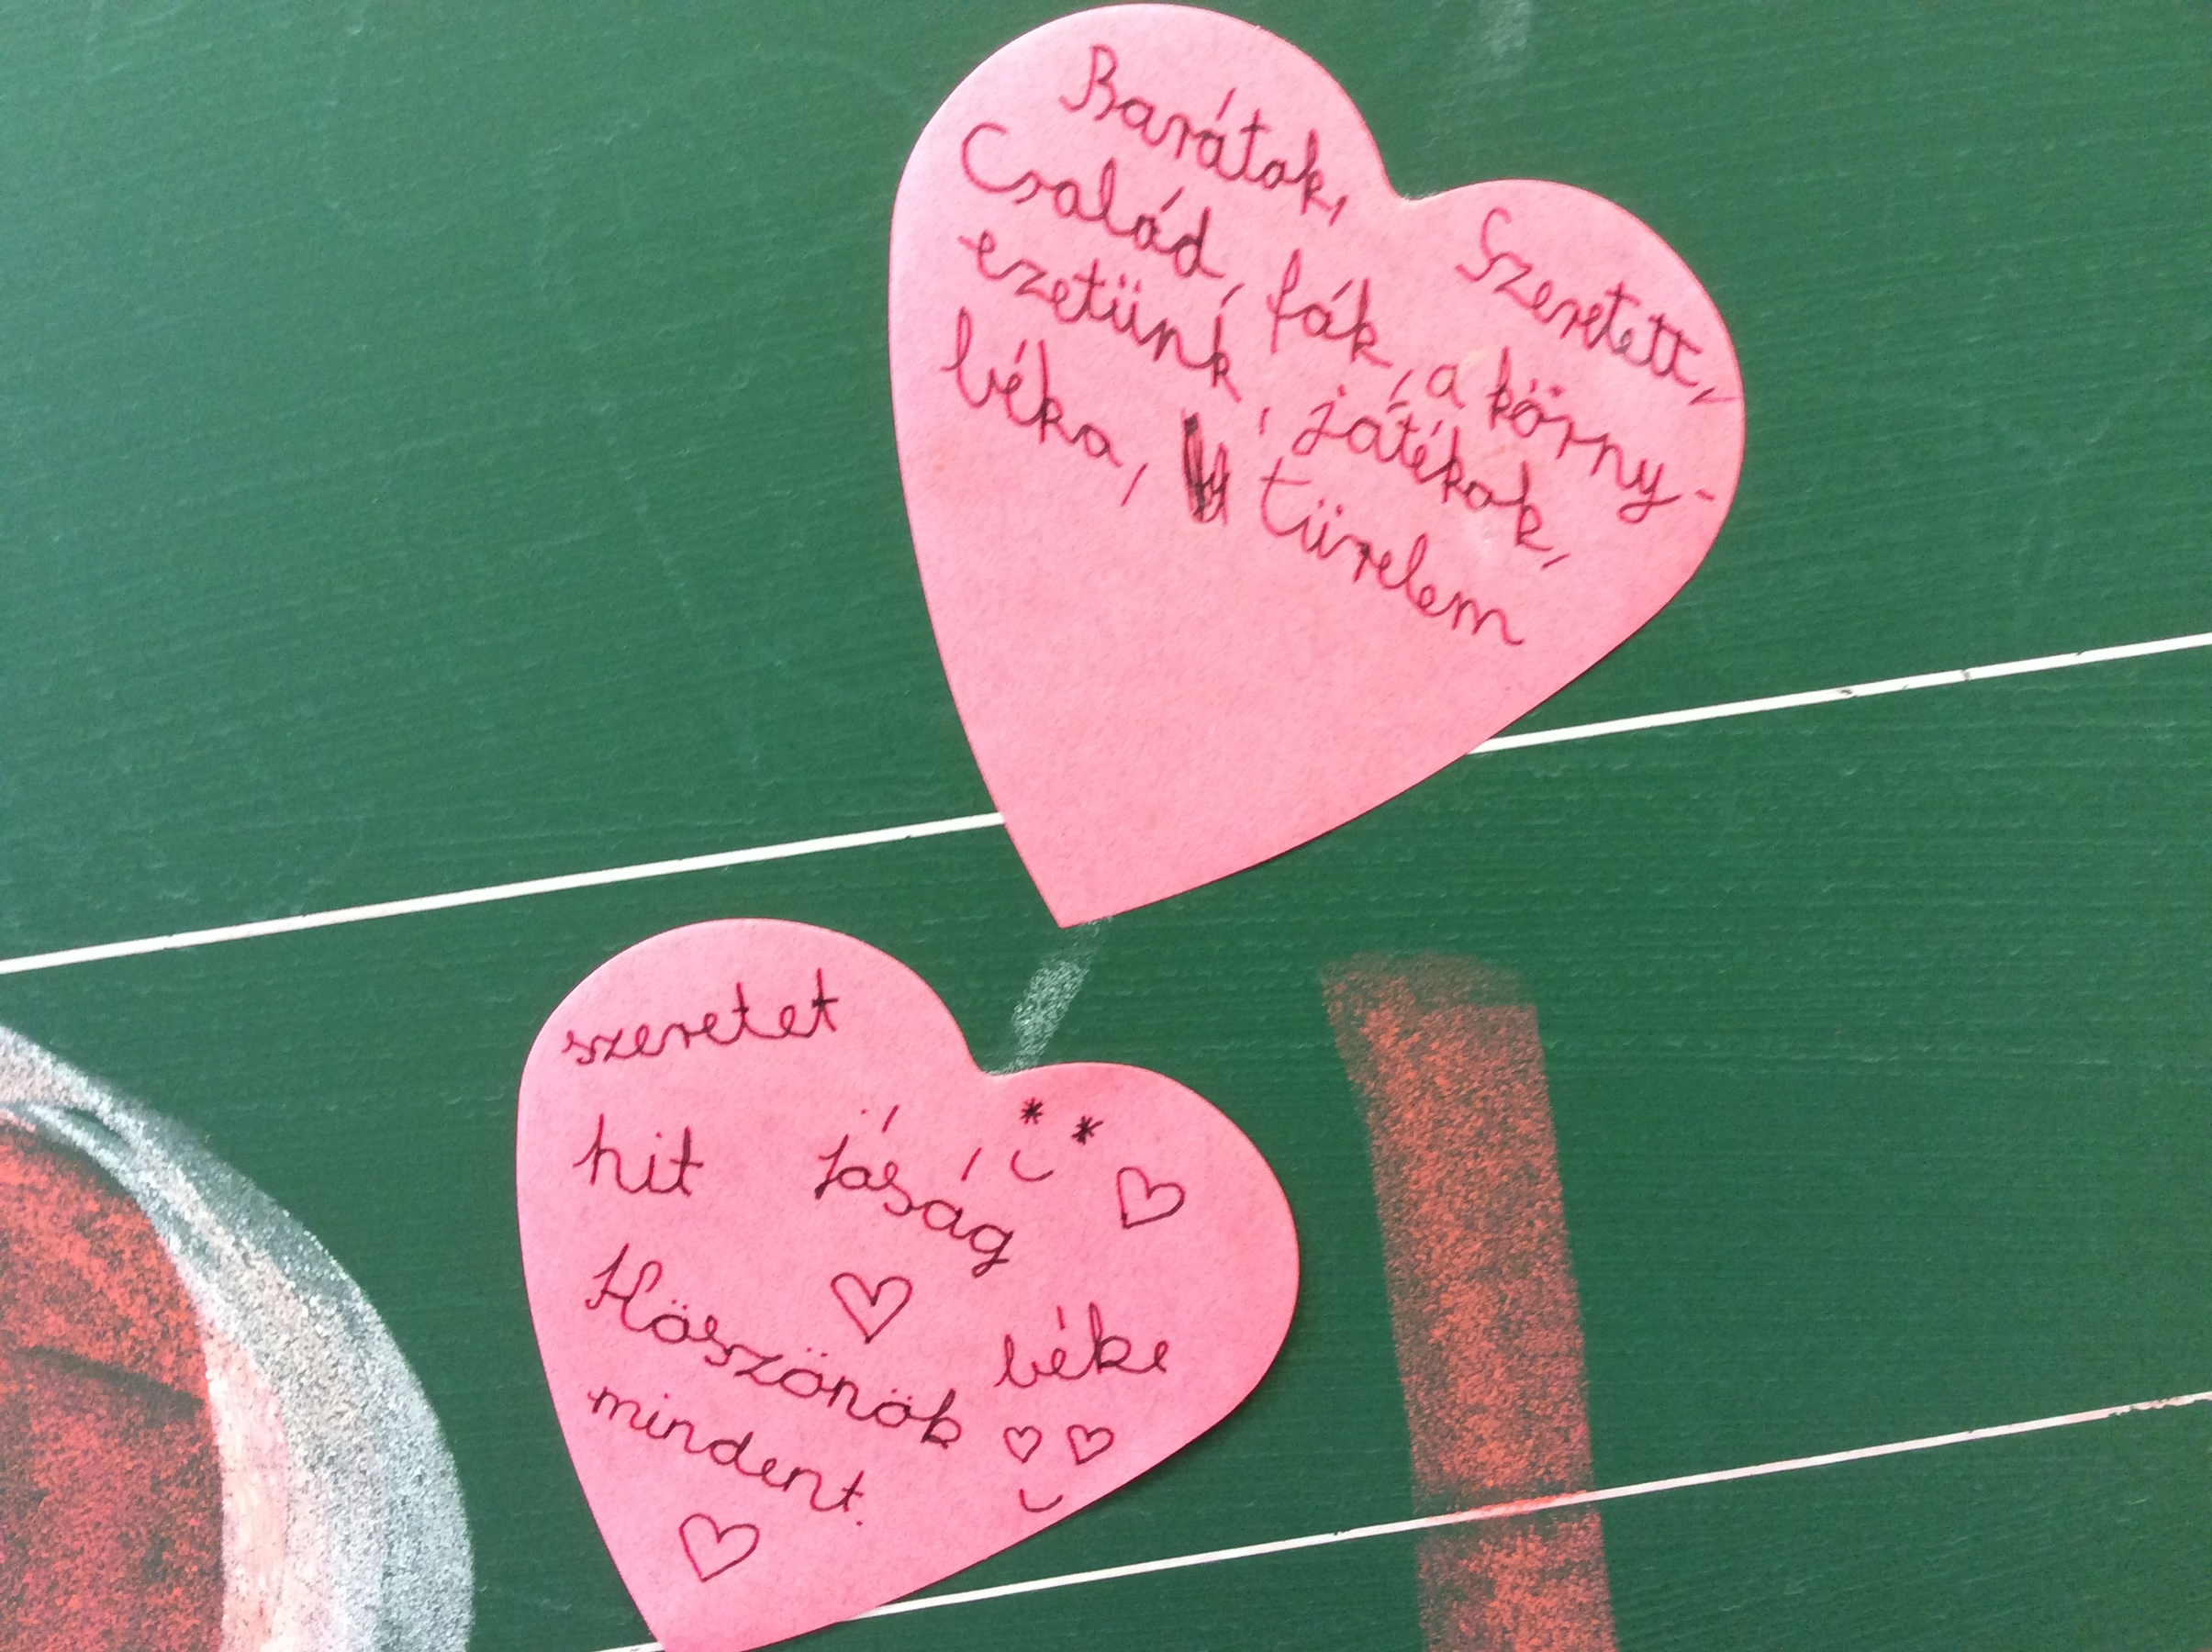 Barátok, Szeretett,
Család, fák, a körny-
ezetünk, játékok,
béka, türelem
szeretet
hit jóság
Köszönök béke
mindent.